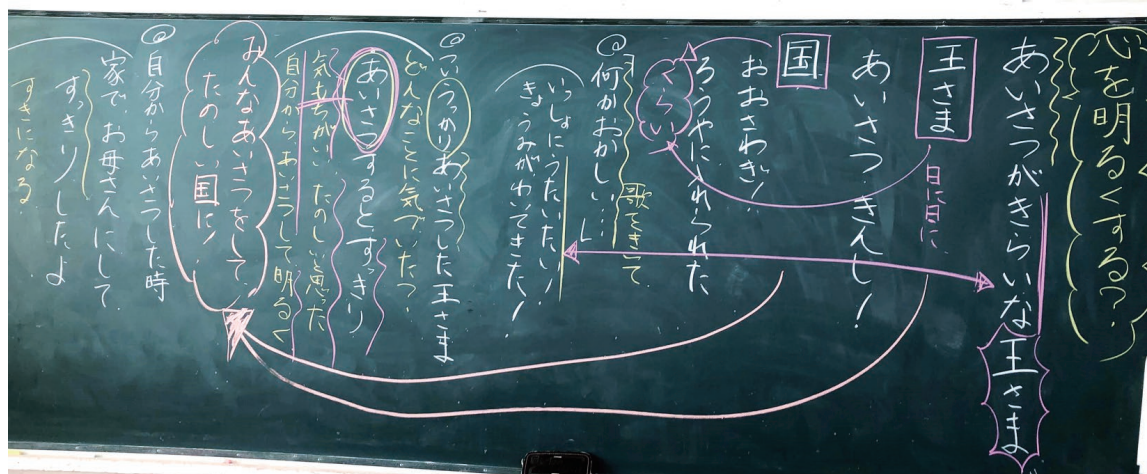 心を明るくする?
あいさつがきらいな王さま
王さま
日に日に
あいさつきんし!
国
おおさわぎ!
ろうやにいれられた
くらい
歌をきいて
何かおかしい…
いっしょにうたいたい!
きょうみがわいてきた!
ついうっかりあいさつした王さま
どんなことに気づいたか?
あいさつするとすっきり
気もちがいい たのしいと思った
自分からあいさつして明るく
みんなあいさつをして、
たのしい国に!
自分からあいさつした時
家で、お母さんにして
すっきりしたよ
すきになる